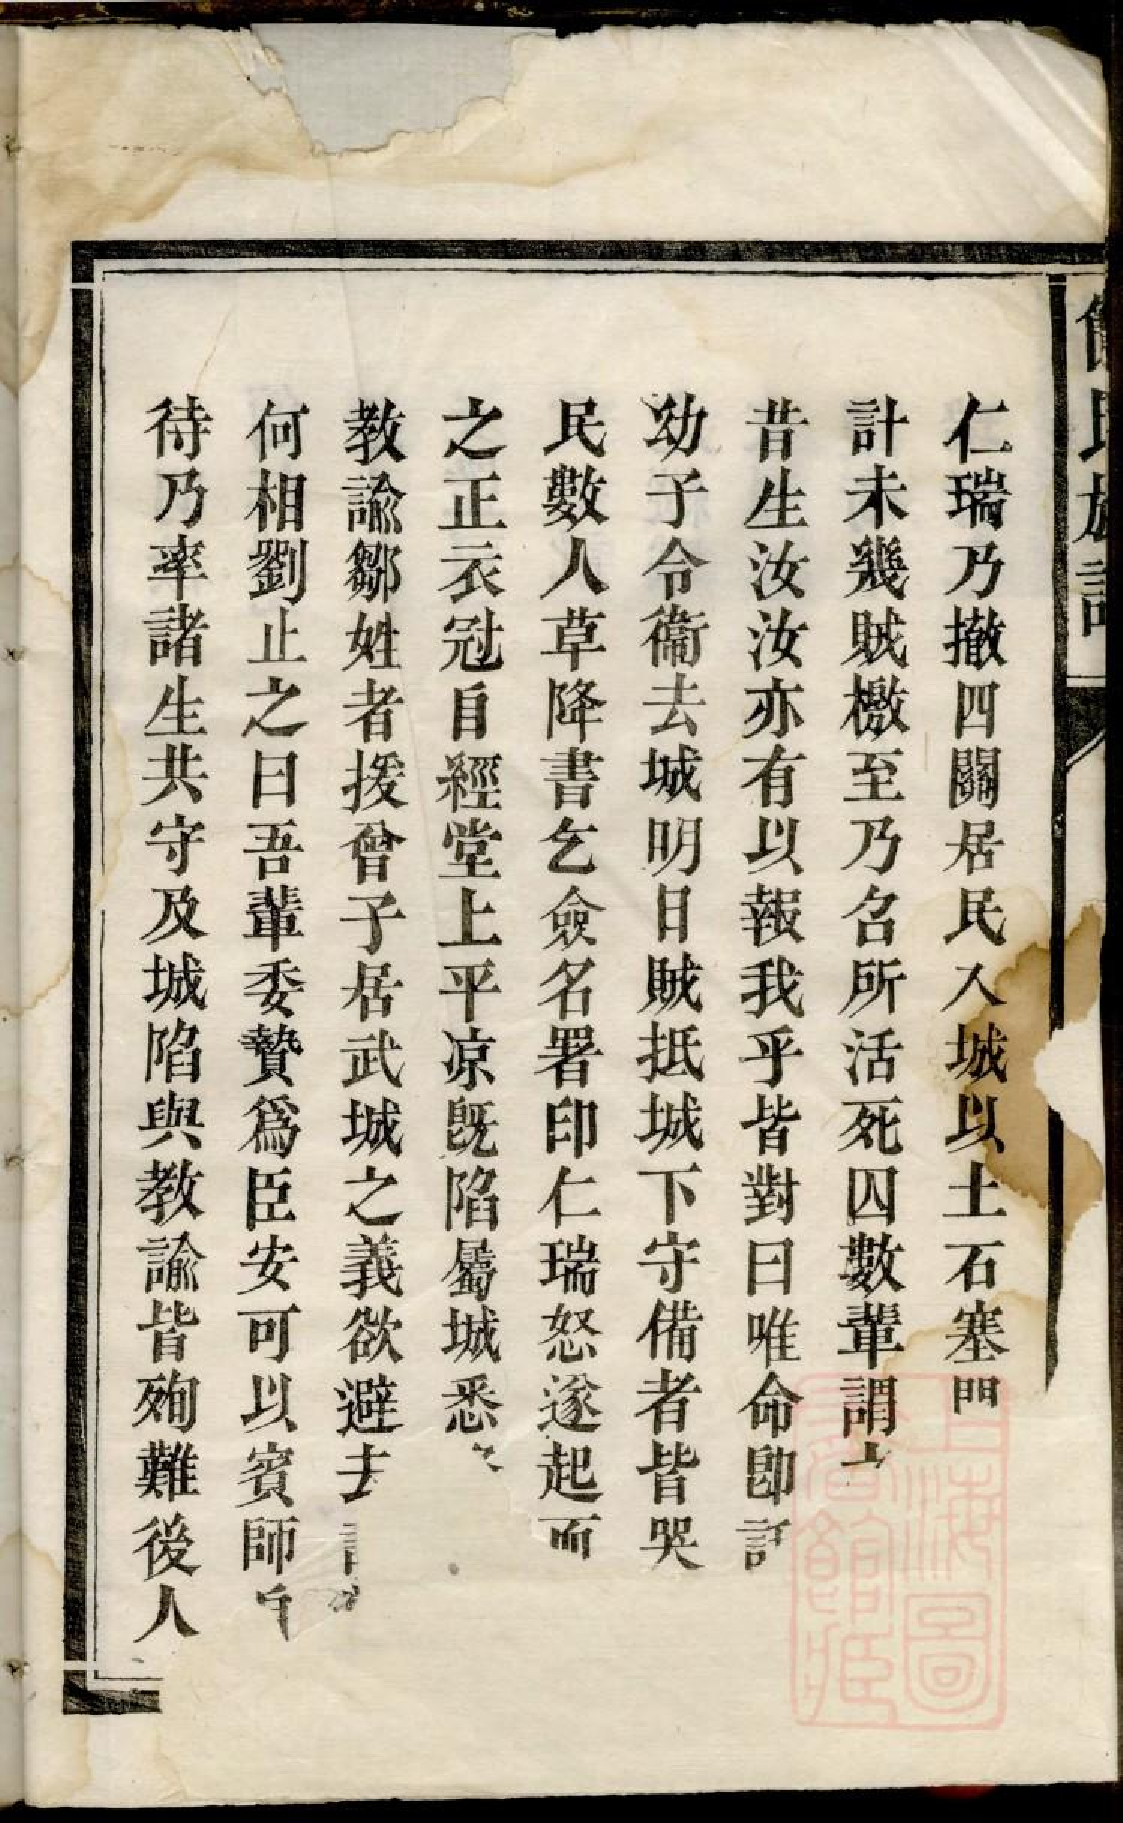 氏族譜
仁瑞乃撤四關居民入城以土石塞門
計未幾賊檄至乃召所活死囚數輩謂
昔生汝汝亦有以報我乎皆對曰唯命卽
幼子令衞去城明日賊抵城下守備者皆哭
民數人草降書乞僉名署印仁瑞怒遂起而
之正衣冠自經堂上平凉旣陷屬城悉
教諭鄒姓者援曾子居武城之義欲避去
何相劉止之曰吾輩委贄爲臣安可以賓師自
待乃率諸生共守及城陷與教諭皆殉難後人
上海圖書館藏